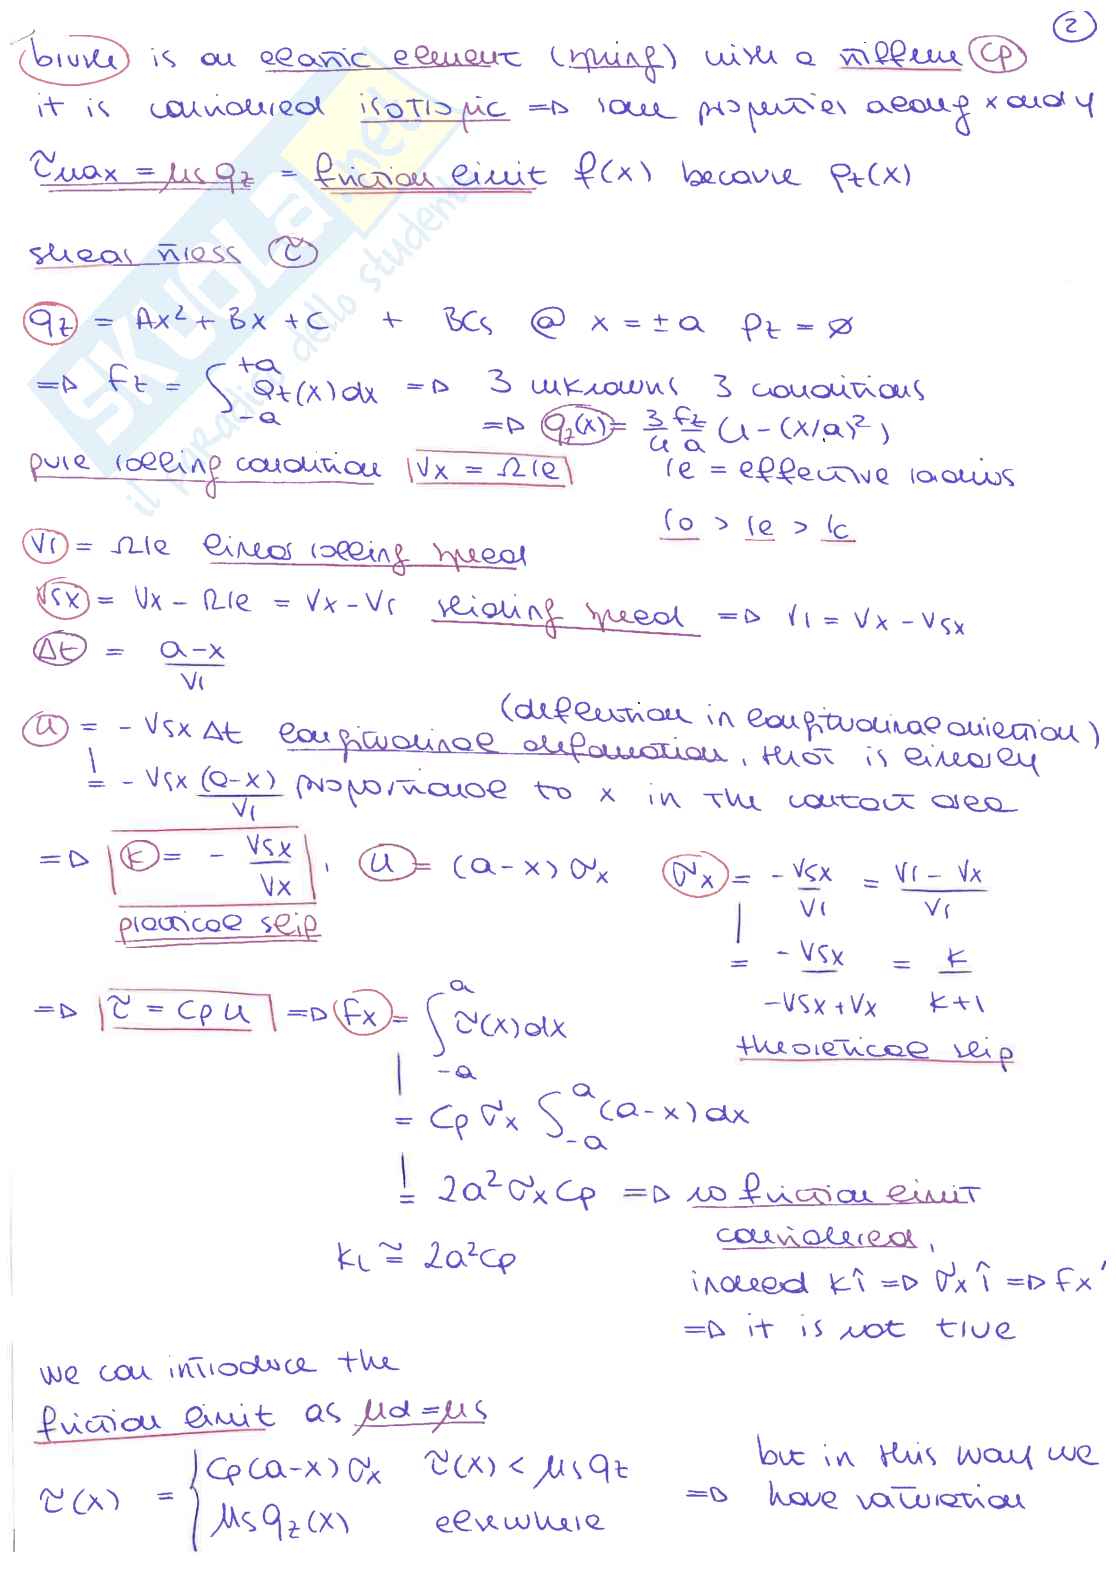 2
brush is an elastic element (spring) with a stiffness cp
it is considered isotropic => same properties along x and y
τmax = μs qz = friction limit f(x) because pz(x)
shear stress τ
qz = Ax² + Bx + C + BCs @ x = ±a pz = ø
=> Fz = ∫-a+a qz(x)dx => 3 unknowns 3 conditions
=> qz(x) = 3/4 Fz/a (1 - (x/a)²)
pure rolling condition Vx = Ω re re = effective radius
ro > re > rc
Vr = Ω re linear rolling speed
Vsx = Vx - Ω re = Vx - Vr sliding speed => Vr = Vx - Vsx
Δt = (a-x)/Vr
(deflection in longitudinal direction)
u = - Vsx Δt longitudinal deformation, that is linearly
= - Vsx (a-x)/Vr proportional to x in the contact area
=> k = - Vsx/Vx , u = (a-x) σx σx = - Vsx/Vr = (Vr - Vx)/Vr
practical slip
= - Vsx/(-Vsx + Vx) = k/(k+1)
theoretical slip
=> τ = cp u => Fx = ∫-a a τ(x)dx
= cp σx ∫-a a (a-x)dx
= 2a² σx cp => no friction limit
considered,
kL ≅ 2a²cp
indeed k↑ => σx↑ => Fx↑
=> it is not true
we can introduce the
friction limit as μd = μs
τ(x) = { cp(a-x)σx τ(x) < μs qz
μs qz(x) elsewhere
but in this way we
=> have saturation
SKUOLA.net
il paradiso dello studente